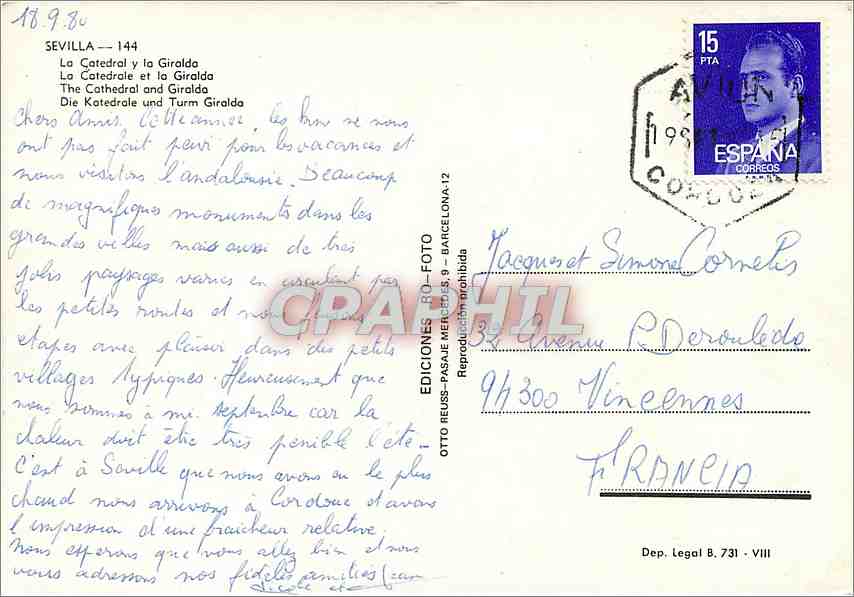 18.9.80
SEVILLA -- 144
La Catedral y la Giralda
La Catedrale et la Giralda
The Cathedral and Giralda
Die Katedrale und Turm Giralda
Chers Amis. Cette année, les km ne nous
ont pas fait peur pour les vacances et
nous visitons l'andalousie. Beaucoup
de magnifiques monuments dans les
grandes villes mais aussi de très
jolis paysages variés en circulant par
les petites routes et nous faisons
étapes avec plaisir dans des petits
villages typiques. Heureusement que
nous sommes à mi. septembre car la
chaleur doit être très pénible l'été -
C'est à Séville que nous avons eu le plus
chaud nous arrivons à Cordoue et avons
l'impression d'une fraicheur relative.
Nous espérons que vous allez bien et nous
vous adressons nos fidèles amitiés
EDICIONES RO-FOTO
OTTO REUSS-PASAJE MERCEDES, 9 - BARCELONA-12
Reproducción prohibida
CPAPHIL
15
PTA
ESPAÑA
CORREOS
AVION
Jacques et Simone Cornelis
32 Avenue P. Derouledo
94300 Vincennes
FRANCIA
Dep. Legal B. 731 - VIII